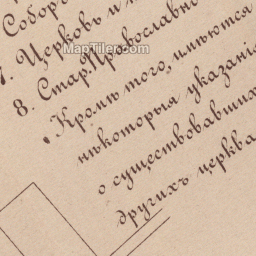 Собор
7. Церковь и
8. Стар. Православн
Кромѣ того, имѣются
нѣкоторыя указанія
о существовавших
другихъ церква
MapTiler.com